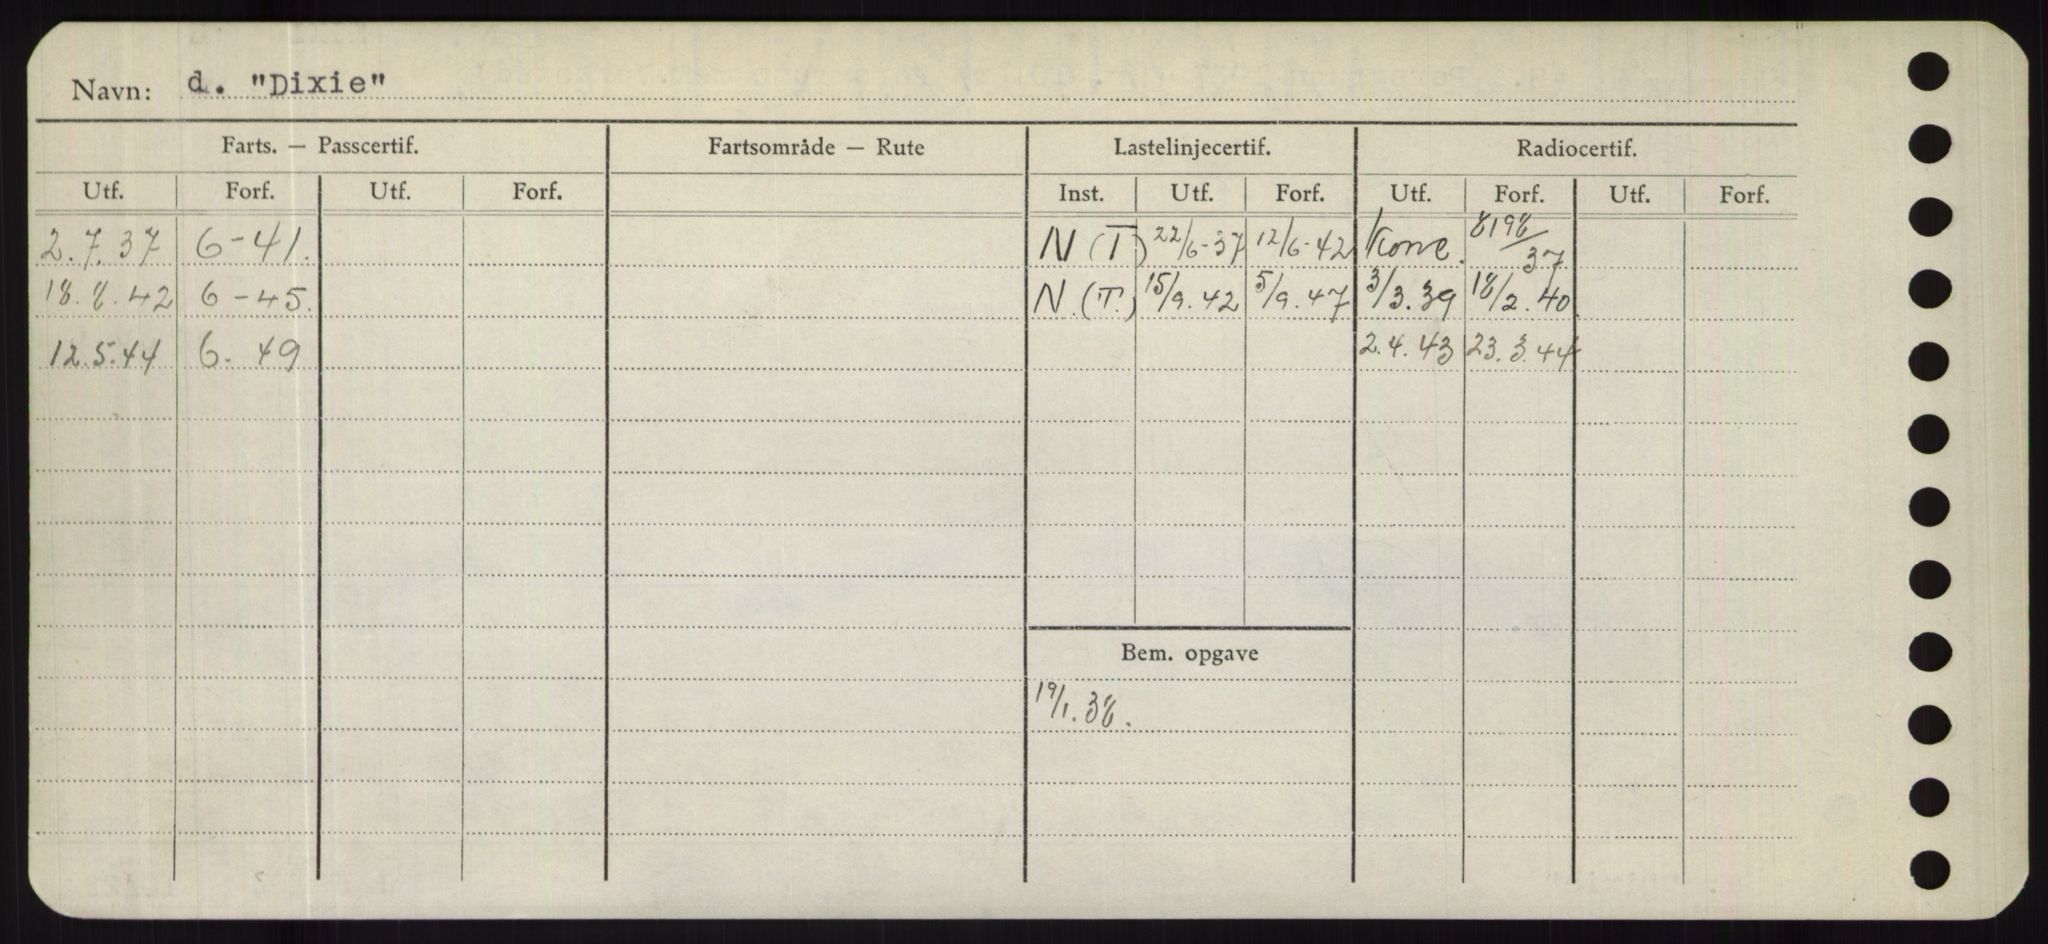 Navn: d. "Dixie"
Farts. — Passcertif. Fartsområde — Rute Lastelinjecertif. Radiocertif.
Utf. Forf. Utf. Forf. Inst. Utf. Forf. Utf. Forf. Utf. Forf.
2.7.37 6-41. N (T.) 22/6-37 12/6-42 Korre. 8198/37
18.8.42 6-45. N.(T.) 15/9.42 5/9.47 3/3.39 18/2.40
12.5.44 6.49 2.4.43 23.3.44
Bem. opgave
19/1.38.